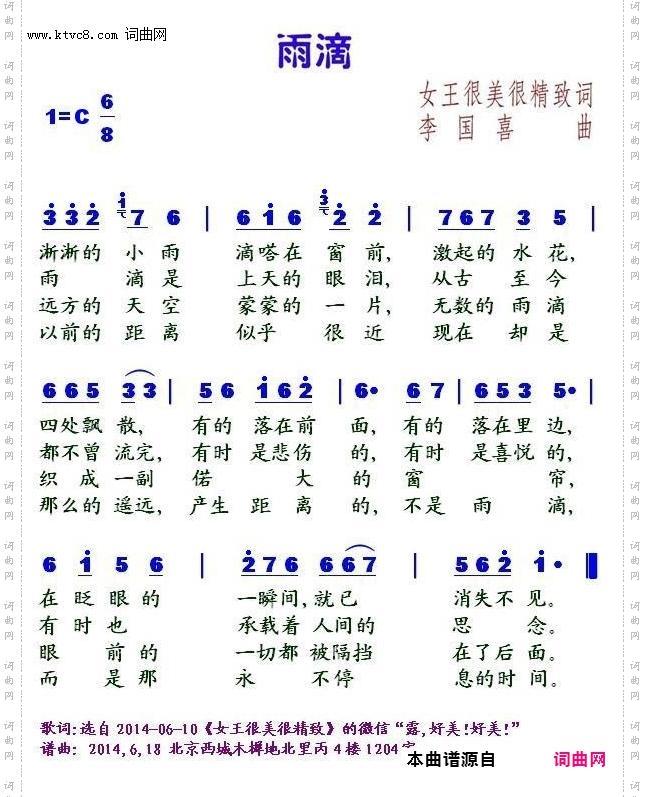 www.ktvc8.com 词曲网
雨滴
女王很美很精致词
李国喜 曲
1=C 6/8
3 3 2 1 7 6 | 6 1 6 3 2 2 | 7 6 7 3 5 |
淅淅的 小 雨 滴嗒在 窗 前, 激起的 水 花,
雨 滴 是 上天的 眼 泪, 从古 至 今
远方的 天 空 蒙蒙的 一 片, 无数的 雨 滴
以前的 距 离 似乎 很 近 现在 却 是
6 6 5 3 3 | 5 6 1 6 2 | 6· 6 7 | 6 5 3 5· |
四处飘 散, 有的 落在前 面, 有的 落在里 边,
都不曾 流完, 有时 是悲伤 的, 有时 是喜悦 的,
织 成 一副 偌 大 的 窗 帘,
那么的 遥远, 产生 距 离 的, 不是 雨 滴,
6 1 5 6 | 2 7 6 6 6 7 | 5 6 2 1·
在 眨 眼 的 一瞬间, 就已 消失不 见。
有 时 也 承载着 人间的 思 念。
眼 前 的 一切都 被隔挡 在了后 面。
而 是 那 永 不停 息的时 间。
歌词:选自 2014-06-10《女王很美很精致》的微信“露,好美!好美!”
谱曲: 2014,6,18 北京西城木樨地北里丙4楼1204室
本曲谱源自 词曲网